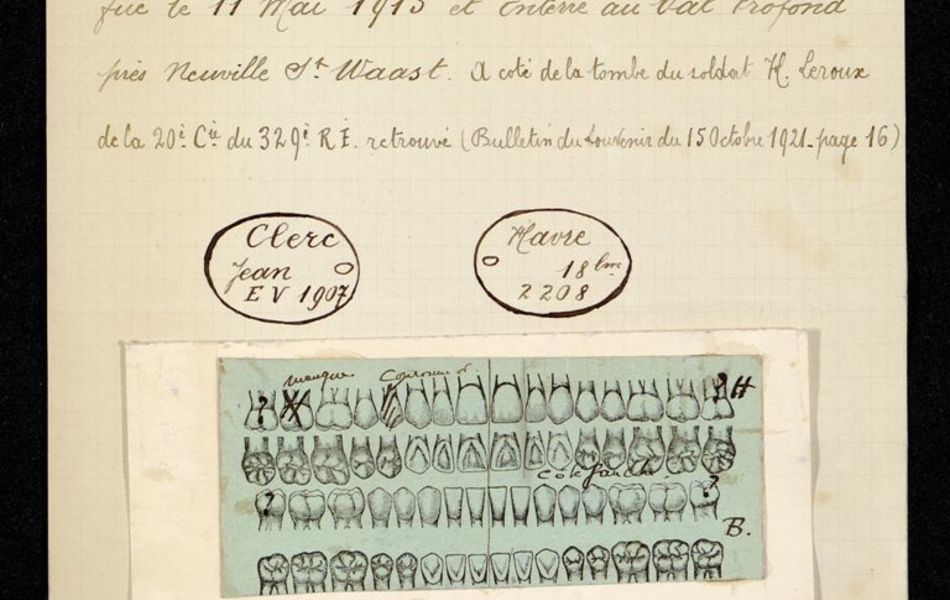 fue le 11 Mai 1915 et Enterré au Val Profond
près Neuville St Waast. A coté de la tombe du soldat H. Leroux
de la 20è Cie du 329è R I. retrouvé (Bulletin du Souvenir du 15 Octobre 1921 - page 16)
Clerc
Jean
E V 1907
Havre
18 lm
2208
manque Couronne or
? ? H
coté gauche
? ?
B.